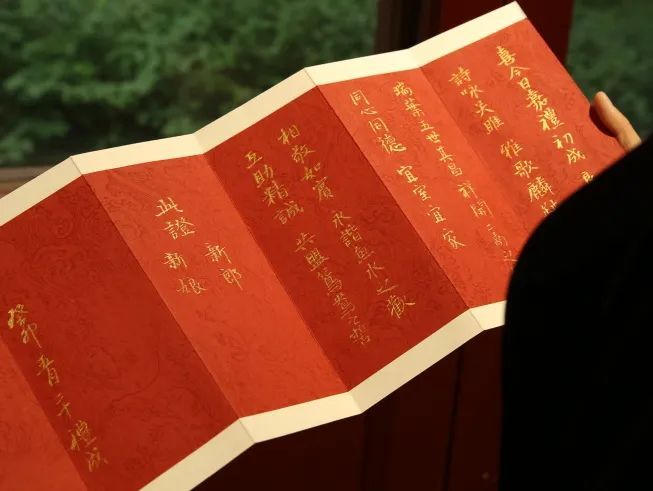 喜今日嘉禮初成
詩咏关雎 雅歌麟
瑞葉五世其昌 祥開二南之
同心同德 宜室宜家
相敬如賓 永諧魚水之歡
互助精誠 共盟鴛鴦之誓
新郎
此證 新娘
癸卯 五月二十 禮成